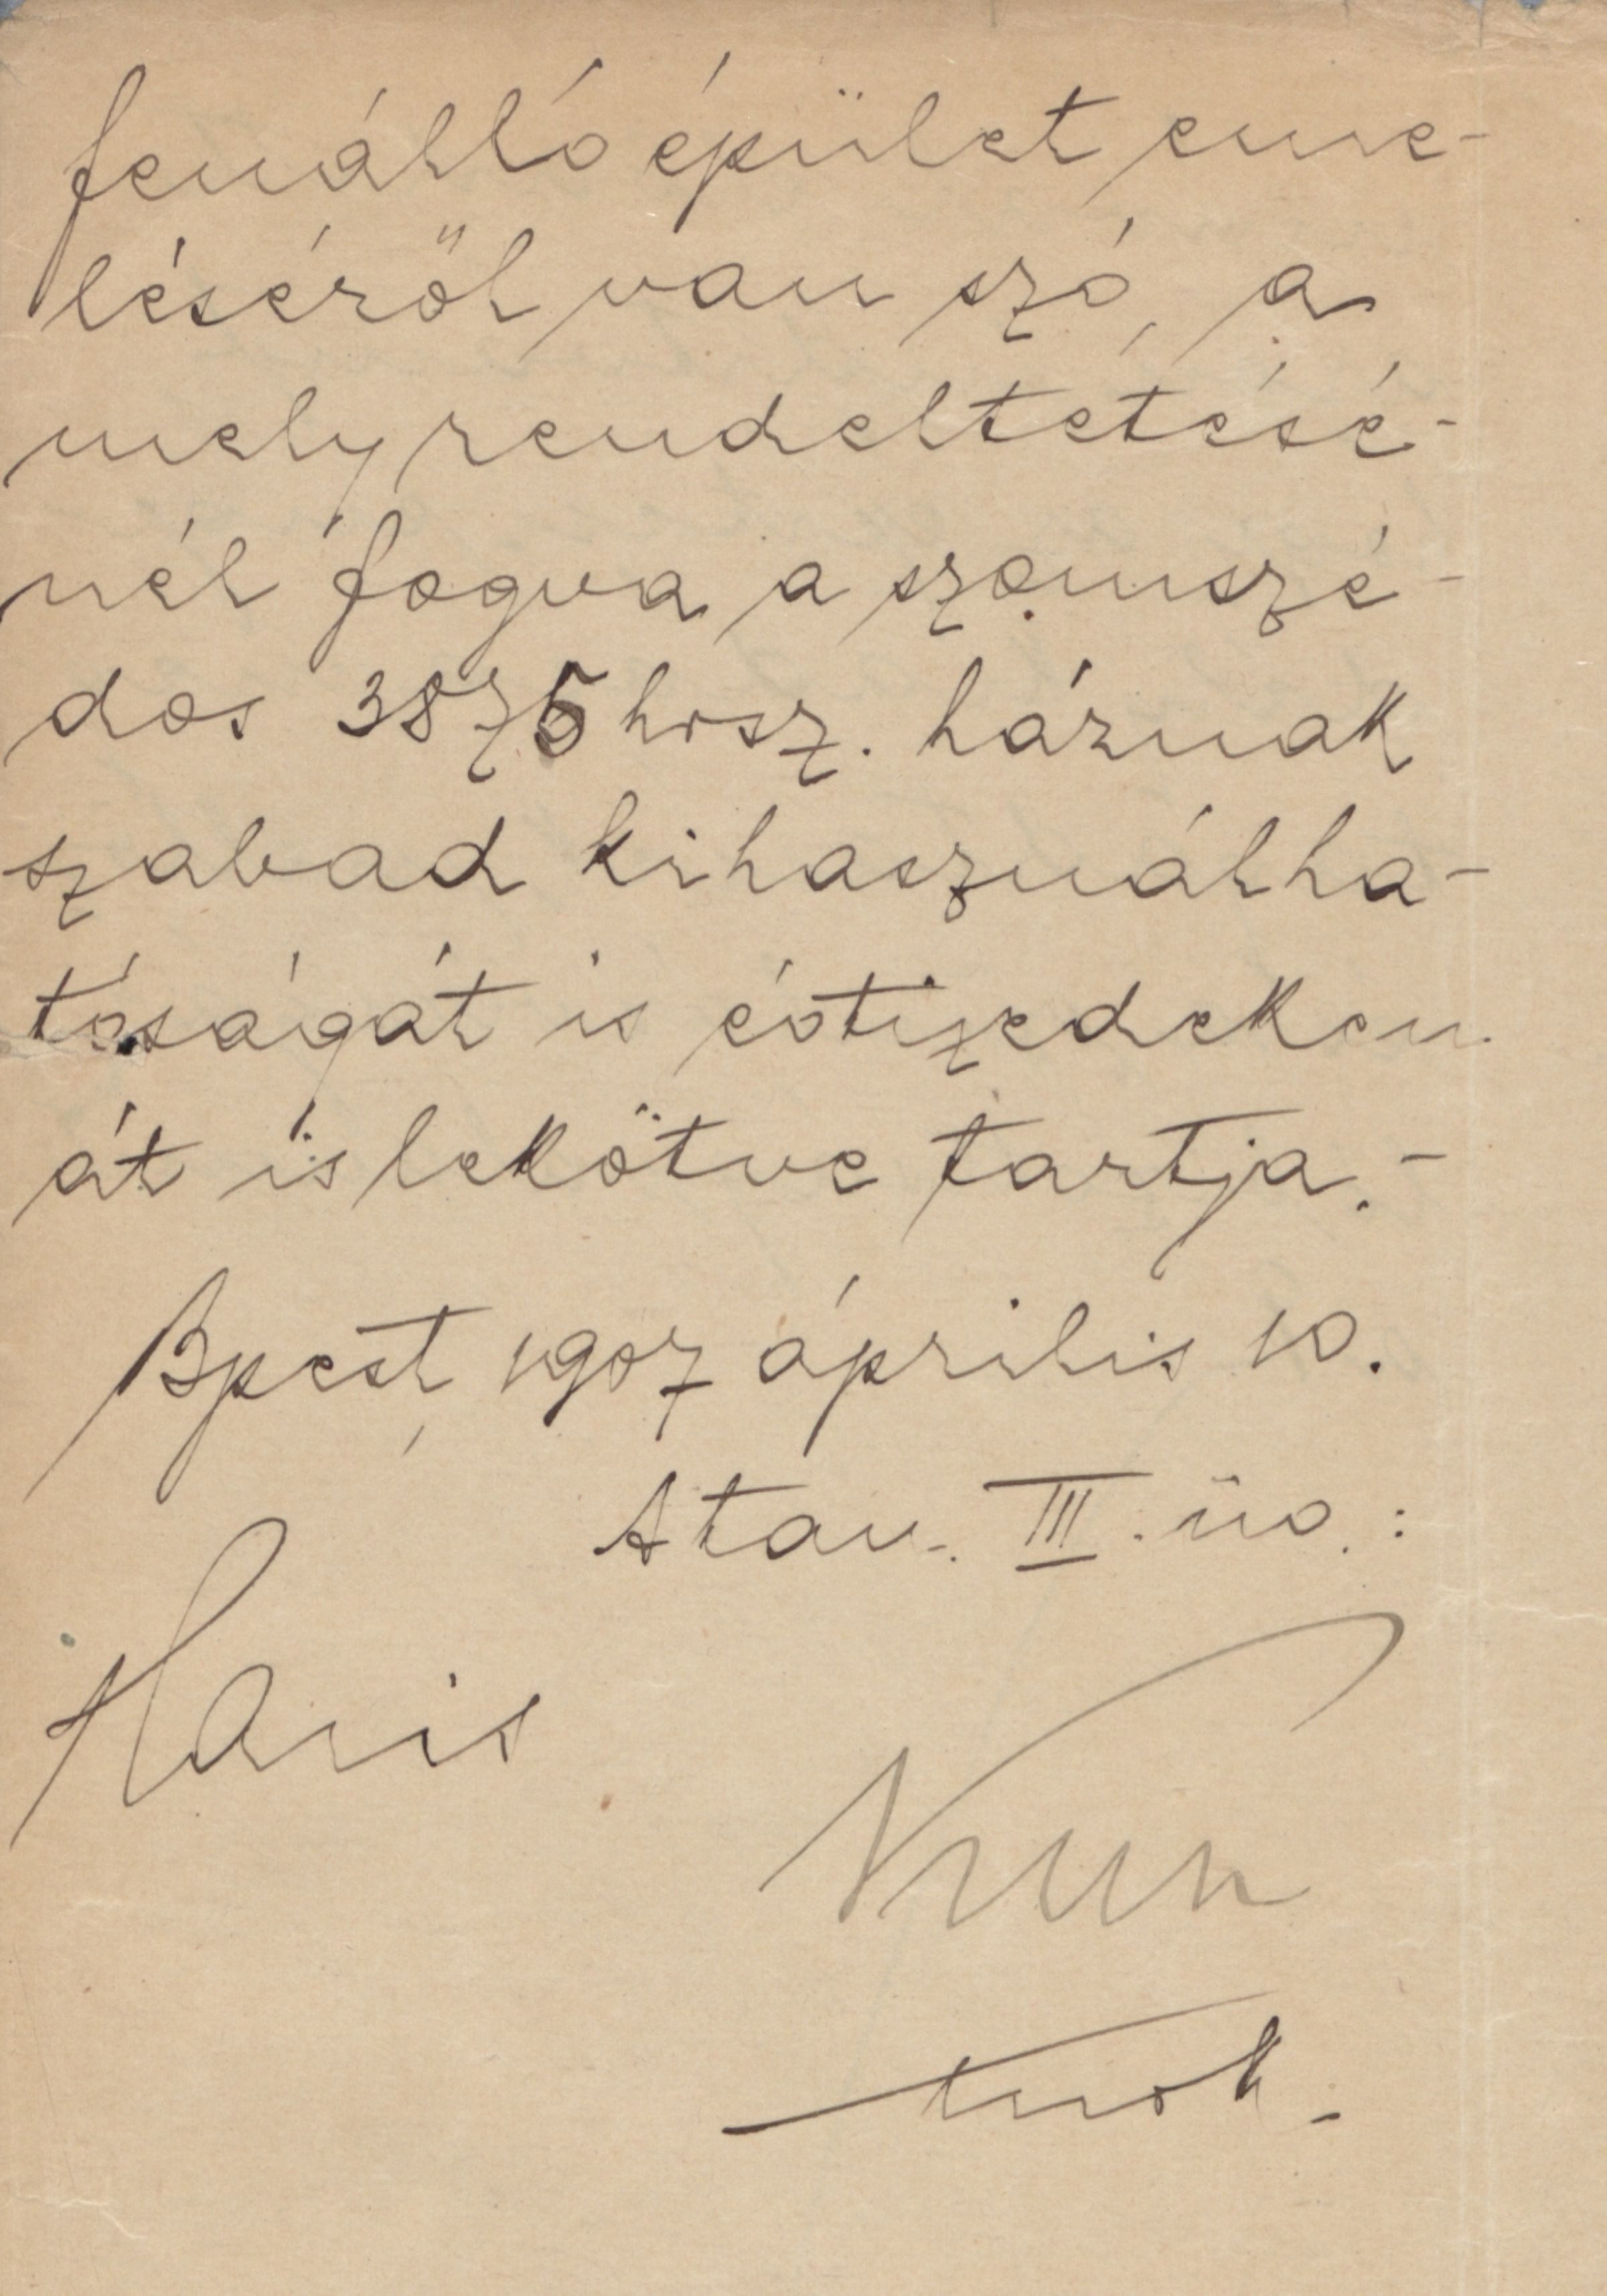 fenálló épület eme-
léséről van szó, a
mely rendeltetésé-
nél fogva a szomszé-
dos 3875 hrsz. háznak
szabad kihasználha-
tóságát is évtizedeken
át is lekötve tartja.-
Bpest, 1907 április 10.
A tan. III. üo.:
Haris